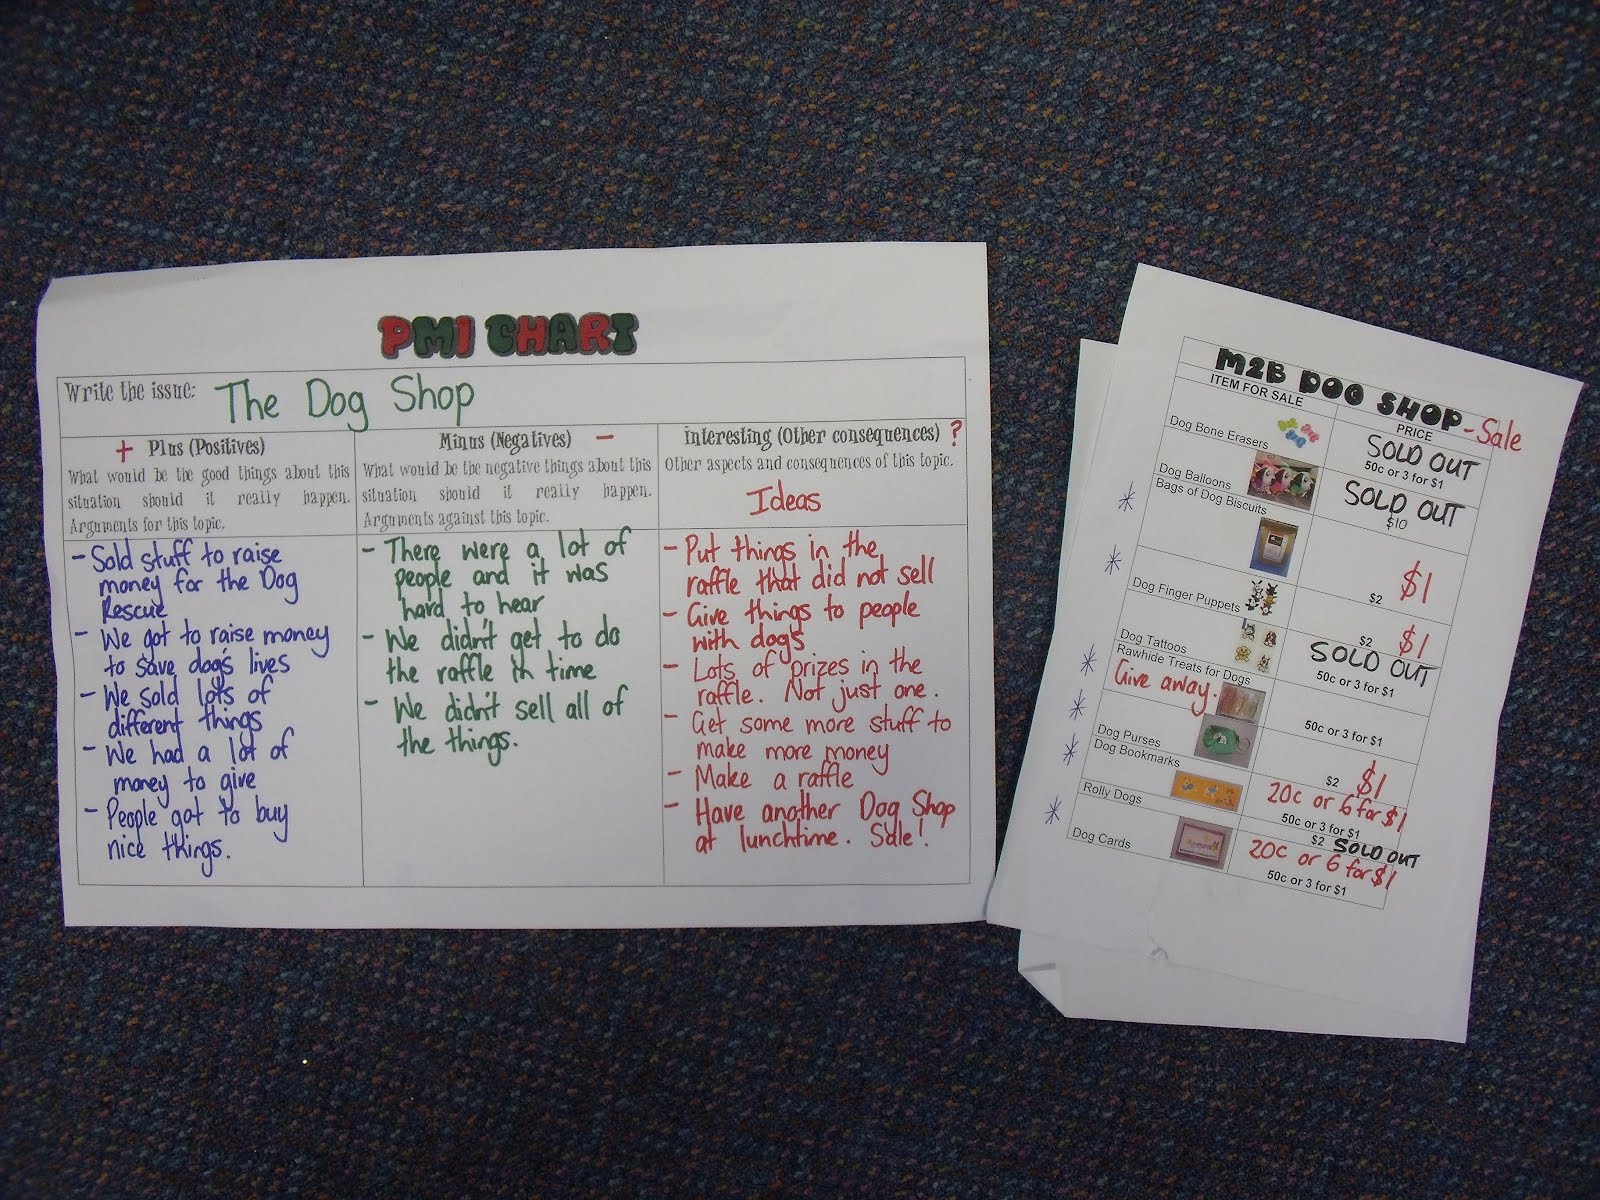 PMI CHART
Write the issue: The Dog Shop
+ Plus (Positives)
What would be the good things about this
situation should it really happen.
Arguments for this topic.
- Sold stuff to raise
money for the Dog
Rescue
- We got to raise money
to save dog's lives
- We sold lots of
different things
- We had a lot of
money to give
- People got to buy
nice things.
Minus (Negatives) -
What would be the negative things about this
situation should it really happen.
Arguments against this topic.
- There were a lot of
people and it was
hard to hear
- We didn't get to do
the raffle in time
- We didn't sell all of
the things.
Interesting (Other consequences) ?
Other aspects and consequences of this topic.
Ideas
- Put things in the
raffle that did not sell
- Give things to people
with dogs
- Lots of prizes in the
raffle. Not just one.
- Get some more stuff to
make more money
- Make a raffle
- Have another Dog Shop
at lunchtime. Sale!
M2B DOG SHOP - Sale
ITEM FOR SALE
PRICE
Dog Bone Erasers
SOLD OUT
50c or 3 for $1
Dog Balloons
SOLD OUT
$10
* Bags of Dog Biscuits
$2 $1
* Dog Finger Puppets
$2 $1
Dog Tattoos
SOLD OUT
50c or 3 for $1
* Rawhide Treats for Dogs
Give away.
50c or 3 for $1
* Dog Purses
$2 $1
* Dog Bookmarks
20c or 6 for $1
50c or 3 for $1
Rolly Dogs
$2 SOLD OUT
* Dog Cards
20c or 6 for $1
50c or 3 for $1